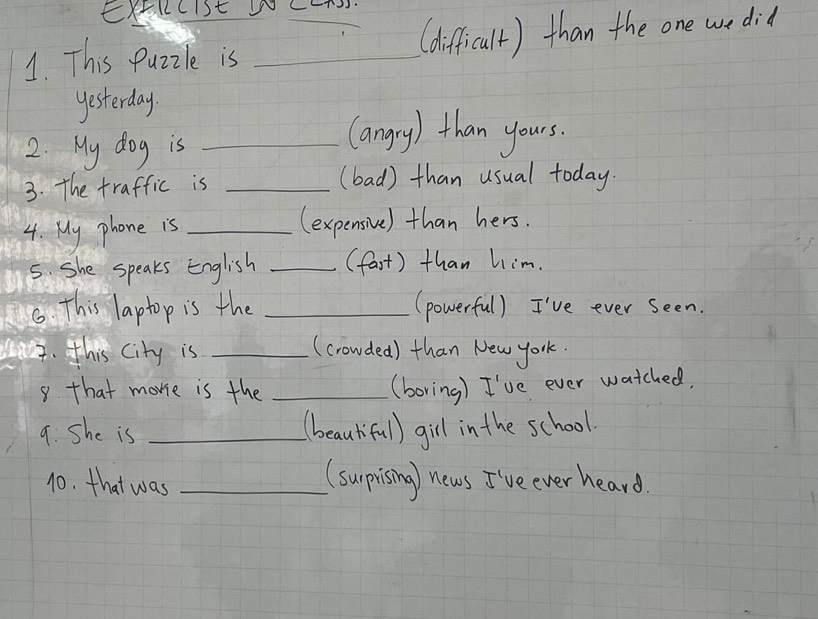 EXERCISE IN CLASS.
1. This Puzzle is ___________ (difficult) than the one we did
yesterday.
2. My dog is ___________ (angry) than yours.
3. The traffic is ________ (bad) than usual today.
4. My phone is ________ (expensive) than hers.
5. She speaks English _____ (fast) than him.
6. This laptop is the ___________ (powerful) I've ever seen.
7. this City is _______ (crowded) than New york.
8 that movie is the _________ (boring) I've ever watched.
9. She is ____________ (beautiful) girl in the school.
10. that was ___________ (surprising) news I've ever heard.